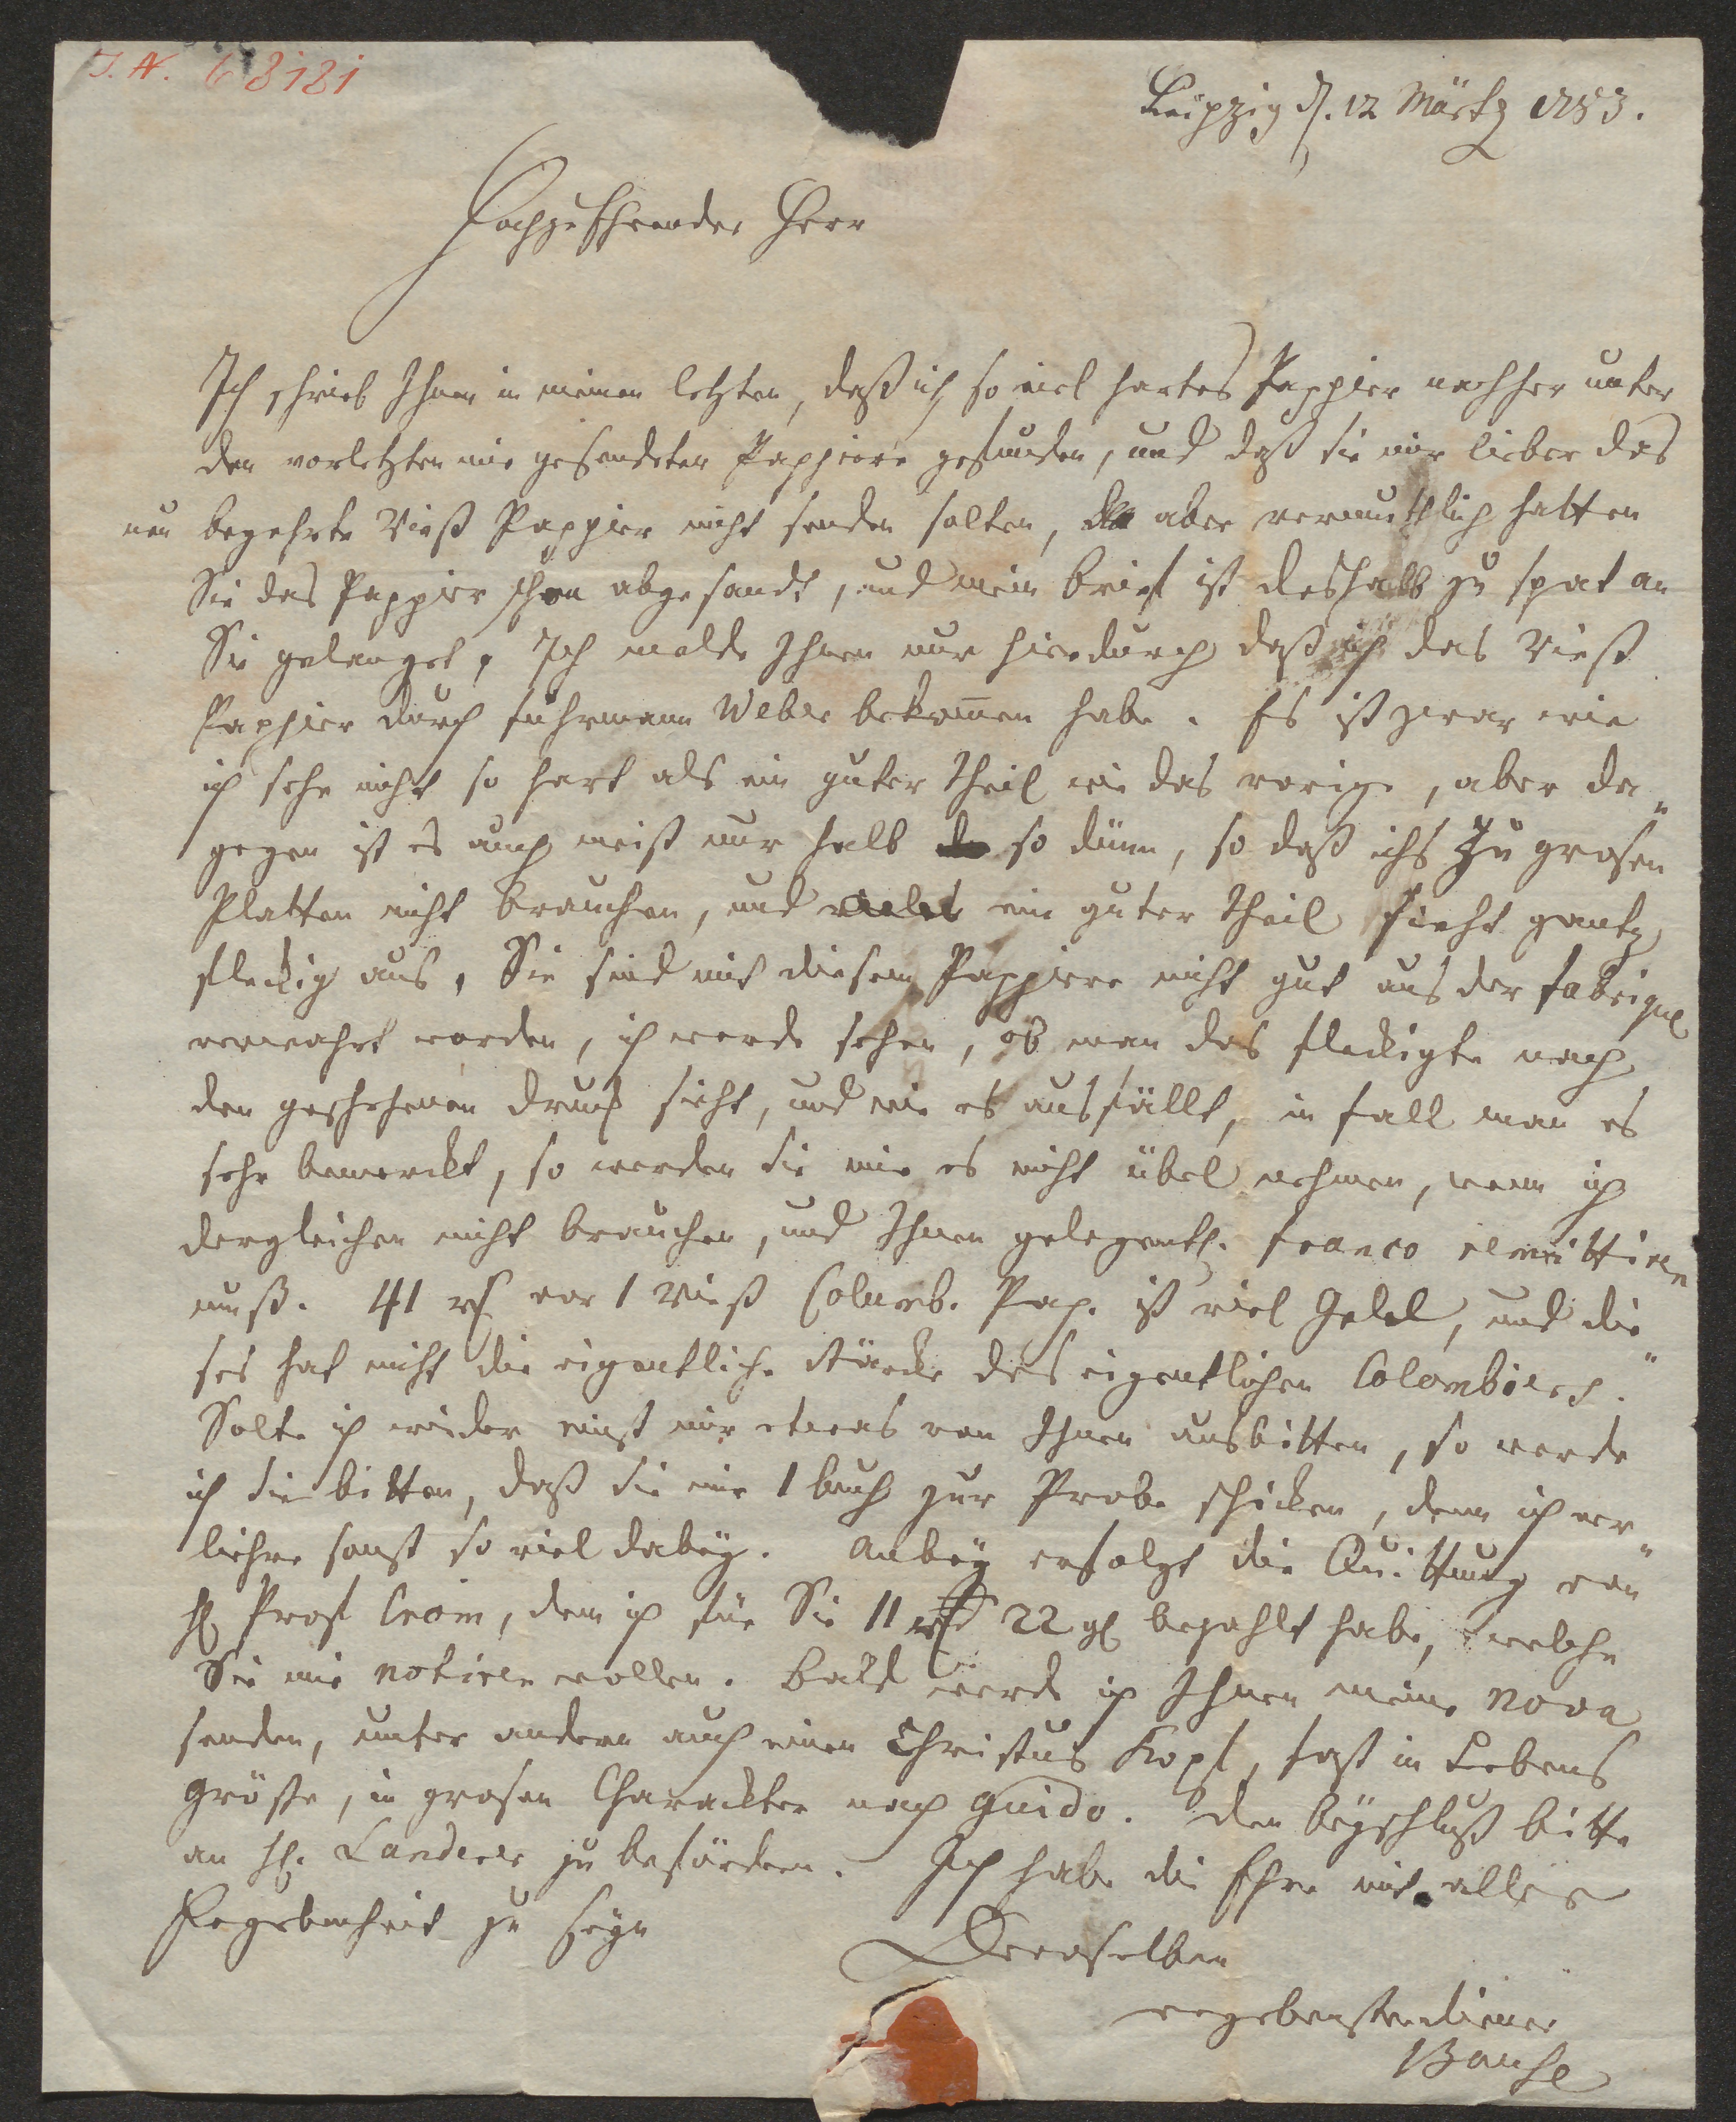 J. N. 68181
Leipzig d. 12 Märtz 1783.
Hochzuehrender Herr
Ich schrieb Ihnen in meinen letzten, daß ich so viel hartes Pappier nachher unter
den vorletzten mir gesendeten Pappiere gefunden, und daß Sie mir lieber das
neu begehrte Rieß Pappier nicht senden solten, aber vermuthlich hatten
Sie das Pappier schon abgesandt, und mein brief ist deshalb zu spat an
Sie gelanget, Ich melde Ihnen nur hierdurch daß ich das Rieß
Pappier durch fuhrmann Weber bekom̅en habe. Es ist zwar wie
ich sehe nicht so hart als ein guter theil wie das vorige, aber da"
gegen ist es auch meist nur halb so dünn, so daß ichs Zu grosen
Platten nicht brauchen, und ein guter theil sieht gantz
fleckig aus, Sie sind mit diesem Pappiere nicht gut aus der fabrique
verwahrt worden, ich werde sehen, ob man das fleckigte nach
den geschehenen druck sieht, und wie es ausfällt, in fall man es
sehr bemerckt, so werden Sie mir es nicht übel nehmen, wenn ich
dergleichen nicht brauchen, und Ihnen gelegentl. franco remittiren
muß. 41 rh vor 1 Rieß Columb. Pap. ist viel Geld, und die"
ses hat nicht die eigentliche Stärcke des eigentlichen Colombiers.
Solte ich wieder einst mir etwas von Ihnen ausbitten, so werde
ich Sie bitten, daß Sie mir 1 buch zur Probe schicken, denn ich ver"
liehre sonst so viel dabey. Anbey erfolgt die Quittung von
H Prof Crain, dem ich für Sie 11 rh 22 gl bezahlt habe, welche
Sie mir notiren wollen. Bald werde ich Ihnen meine Nova
senden, unter andern auch einen Christus Kopf, fast in Lebens
Größe, in grosen Charackter nach Guido. Den beyschluß bitte
an H. Landerer zu befördern. Ich habe die Ehre mit aller
Ergebenheit zu seyn
Deroselben
ergebenster diener
Bause